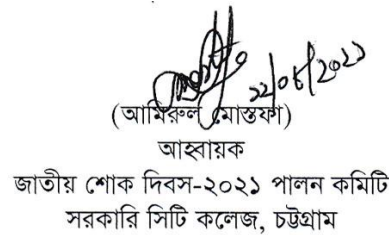 ১২/০৮/২০২১
(আমিরুল মোস্তফা)
আহবায়ক
জাতীয় শোক দিবস-২০২১ পালন কমিটি
সরকারি সিটি কলেজ, চট্টগ্রাম